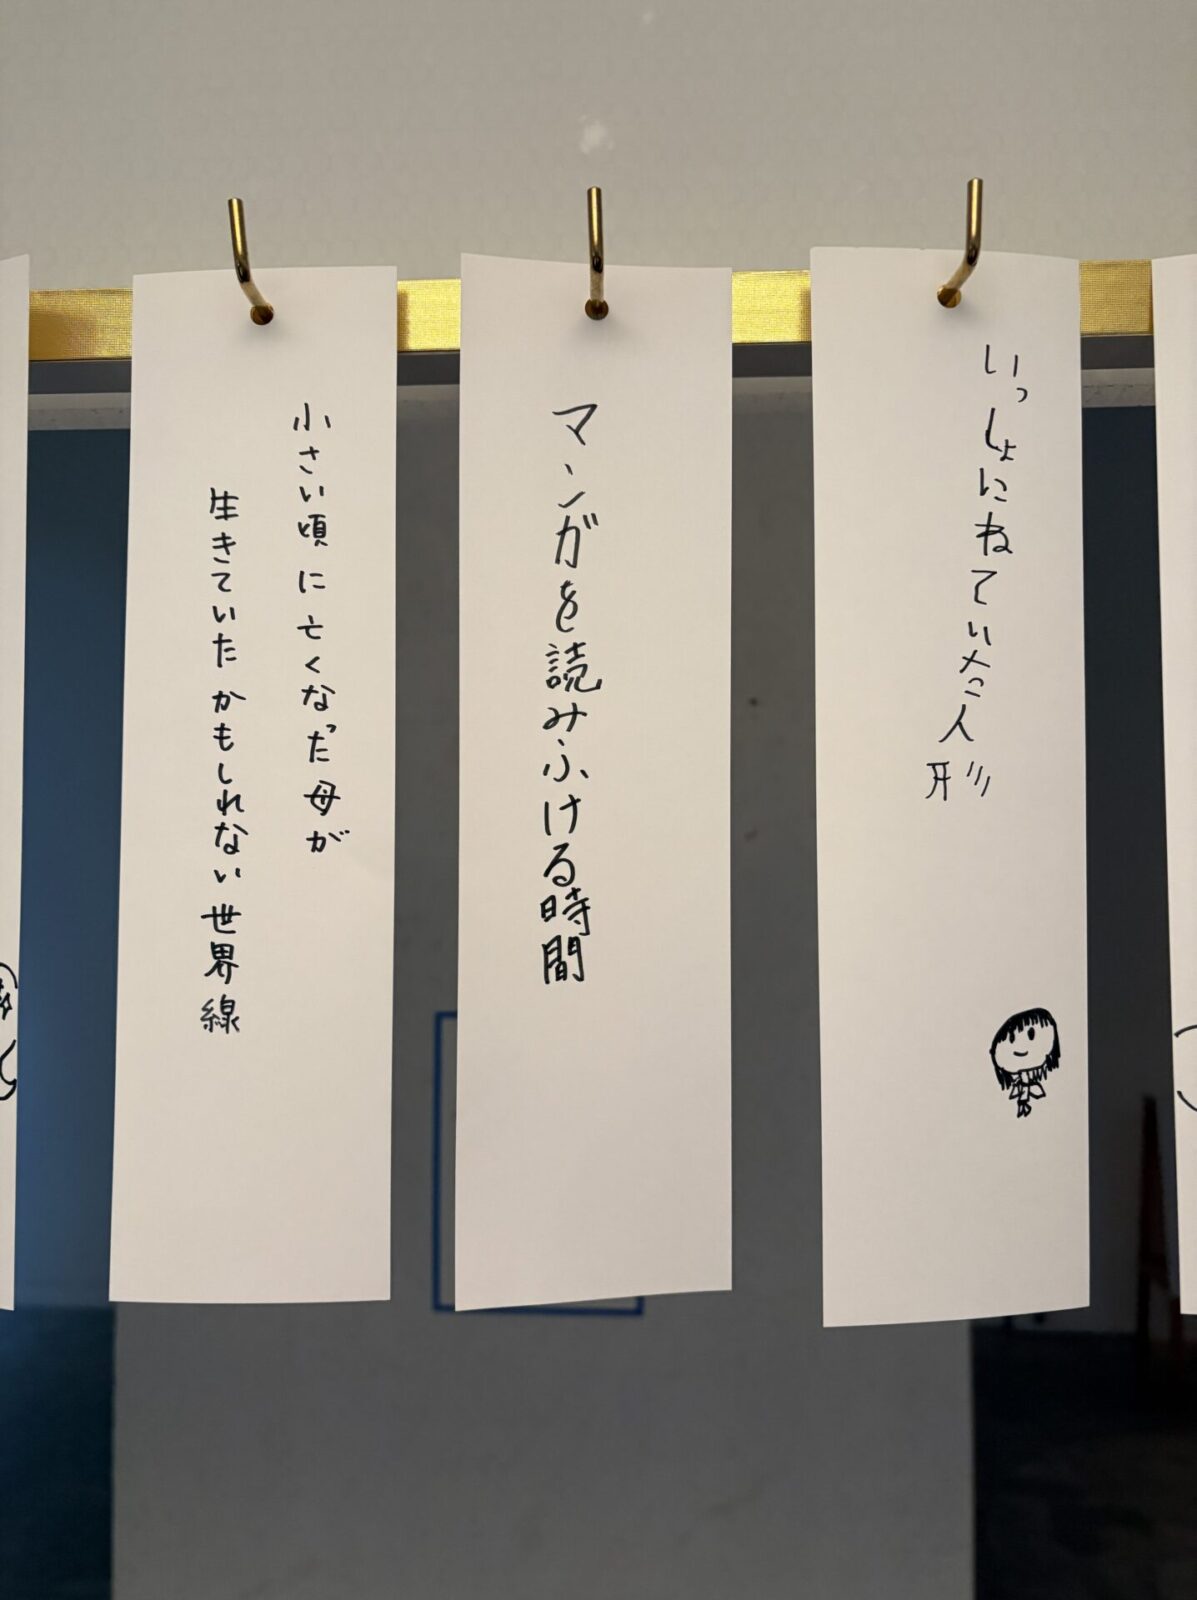 いっしょにねていた人形
マンガを読みふける時間
小さい頃に亡くなった母が
生きていたかもしれない世界線